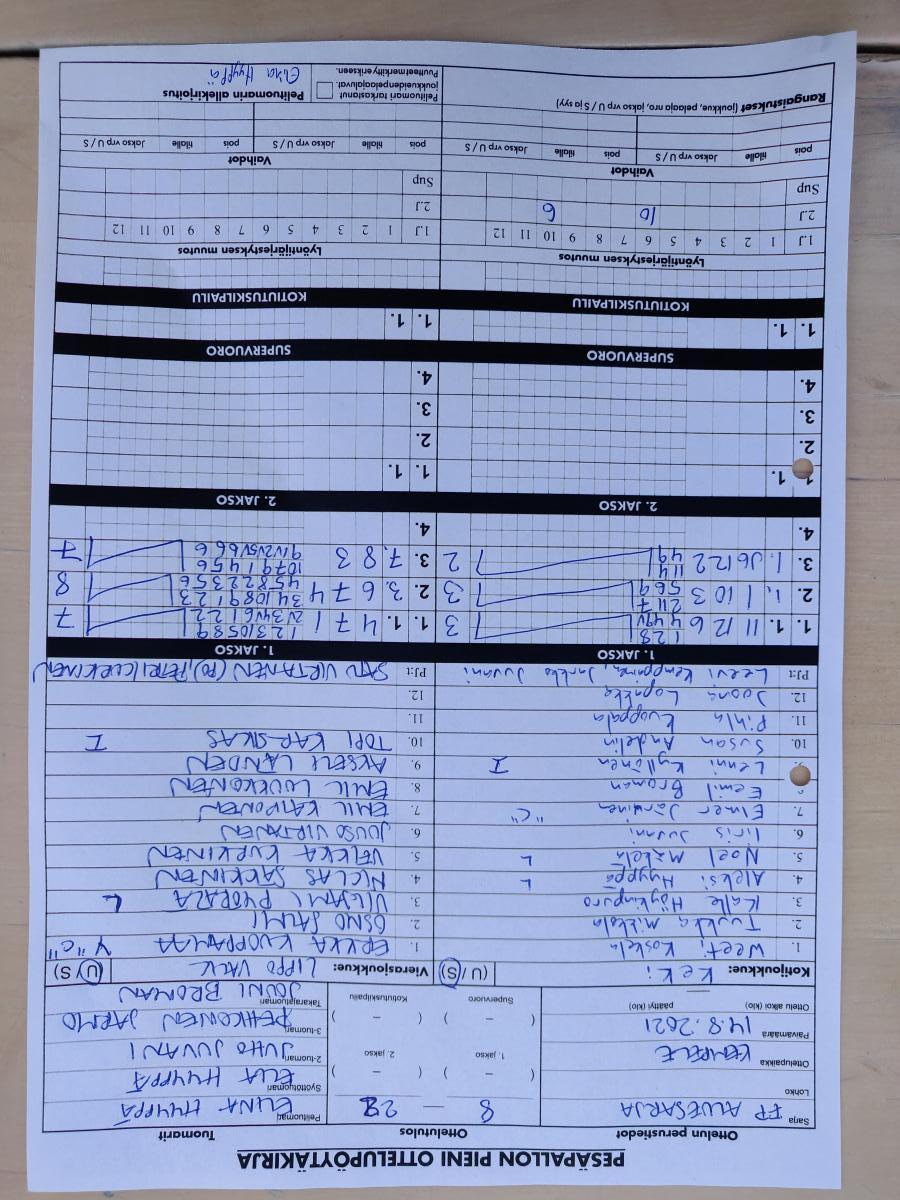 PESÄPALLON PIENI OTTELUPÖYTÄKIRJA
Ottelun perustiedot Ottelutulos Tuomarit
Sarja FP ALUESARJA 8 — 22 Pelituomari ELINA HYYPPÄ
Lohko Syöttötuomari ELLA HYYPPÄ
Ottelupaikka KEMPELE 1. jakso ( – ) 2. jakso ( – ) 2-tuomari JUHO JUVANI
Päivämäärä 14.8.2021 3-tuomari PEHKONEN JARMO
Ottelu alkoi (klo) päättyi (klo) Supervuoro ( – ) Kotiutuskilpailu ( – ) Takarajatuomari JOUNI BROMAN
Kotijoukkue: KeKi (U / S) Vierasjoukkue: LIPPO VALK (U / S)
1. Weeti Koskela 1. ERKKA KUOPPAMAA Y "C"
2. Tuukka Mikkola 2. OSMO SALMI
3. Kalle Höykinpuro 3. VILJAMI PYÖRÄLÄ L
4. Aleksi Hyyppä L 4. NICLAS SÄKKINEN
5. Noel Mäkelä L 5. VEIKKA KURKINEN
6. Iiris Juvani 6. JUUSO VIRTANEN
7. Elmer Järvinen "C" 7. EMIL KATPONEN
8. Eemil Broman 8. EMIL LOUKKONEN
9. Lenni Kyllönen I 9. AKSELI LÄNDEN
10. Susan Andelin 10. TOPI KARSIKAS I
11. Pihla Luoppala 11.
12. Joona Lopakka 12.
PJ:t Leevi Kemppainen, Jarkko Juvani PJ:t SATU VIRTANEN (PO), PETRI KURKINEN
1. JAKSO 1. JAKSO
1. 1. 11 12 6 3 1. 1. 4 7 1 7
2. 1, 1 10 3 3 2. 3, 6 7 4 8
3. 2 3. 7, 8 3 7
4. 4.
2. JAKSO 2. JAKSO
1. 1. 1. 1.
2. 2.
3. 3.
4. 4.
SUPERVUORO SUPERVUORO
1. 1. 1. 1.
KOTIUTUSKILPAILU KOTIUTUSKILPAILU
Lyöntijärjestyksen muutos Lyöntijärjestyksen muutos
1.J 1 2 3 4 5 6 7 8 9 10 11 12 1.J 1 2 3 4 5 6 7 8 9 10 11 12
2.J 10 6 2.J
Sup Sup
Vaihdot Vaihdot
pois tilalle Jakso vrp U / S pois tilalle Jakso vrp U / S pois tilalle Jakso vrp U / S pois tilalle Jakso vrp U / S
Rangaistukset (joukkue, pelaaja nro, jakso vrp U / S ja syy)
Pelituomari tarkastanut
joukkueiden pelaajaluvat.
Puutteet merkitty erikseen.
Pelituomarin allekirjoitus
Elina Hyyppä